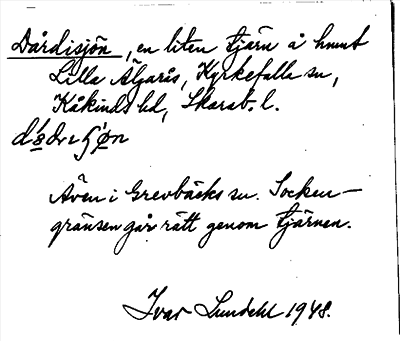 Dårdisjön, en liten tjärn å hmnt
Lilla Älgarås, Kyrkefalla sn,
Kåkinds hd, Skarab. l.
Även i Grevbäcks sn. Socken-
gränsen går rätt genom tjärnen.
Ivar Lundahl 1948.